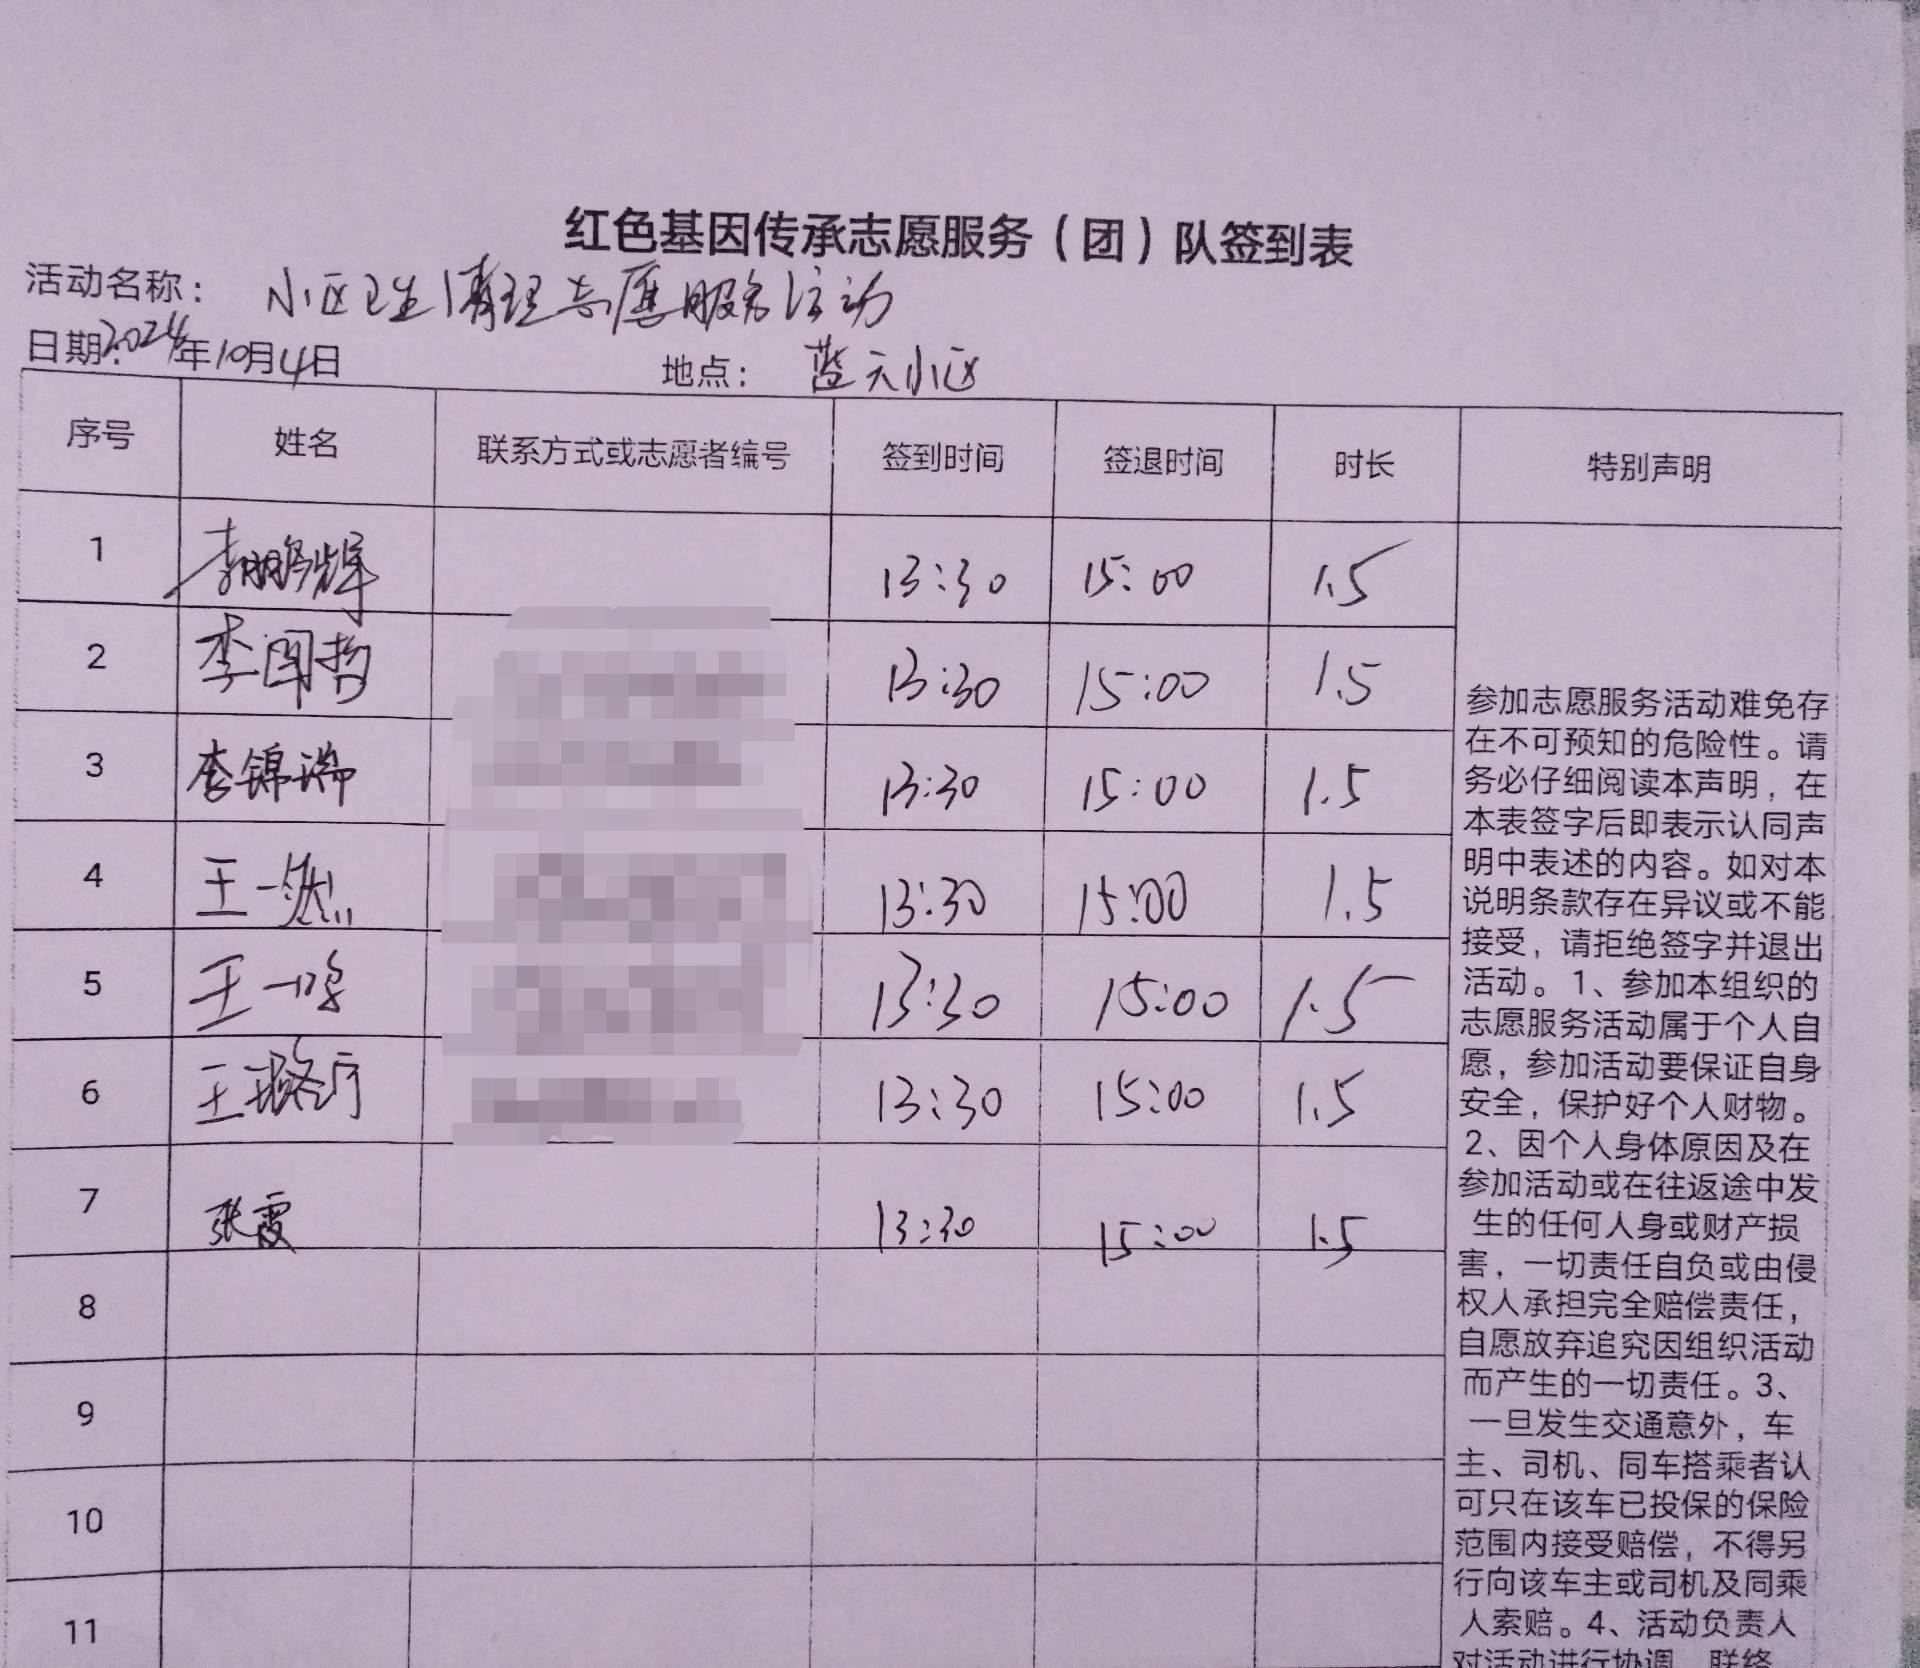 红色基因传承志愿服务（团）队签到表
活动名称： 小区卫生清理志愿服务活动
日期：2024年10月4日 地点： 蓝天小区
序号 姓名 联系方式或志愿者编号 签到时间 签退时间 时长 特别声明
1 李鹏辉 13:30 15:00 1.5
2 李国哲 13:30 15:00 1.5
3 李锦瑞 13:30 15:00 1.5
4 王一然 13:30 15:00 1.5
5 王一鸣 13:30 15:00 1.5
6 王璐 13:30 15:00 1.5
7 张霞 13:30 15:00 1.5
8
9
10
11
参加志愿服务活动难免存
在不可预知的危险性。请
务必仔细阅读本声明，在
本表签字后即表示认同声
明中表述的内容。如对本
说明条款存在异议或不能
接受，请拒绝签字并退出
活动。1、参加本组织的
志愿服务活动属于个人自
愿，参加活动要保证自身
安全，保护好个人财物。
2、因个人身体原因及在
参加活动或在往返途中发
生的任何人身或财产损
害，一切责任自负或由侵
权人承担完全赔偿责任，
自愿放弃追究因组织活动
而产生的一切责任。3、
一旦发生交通意外，车
主、司机、同车搭乘者认
可只在该车已投保的保险
范围内接受赔偿，不得另
行向该车主或司机及同乘
人索赔。4、活动负责人
对活动进行协调、联络